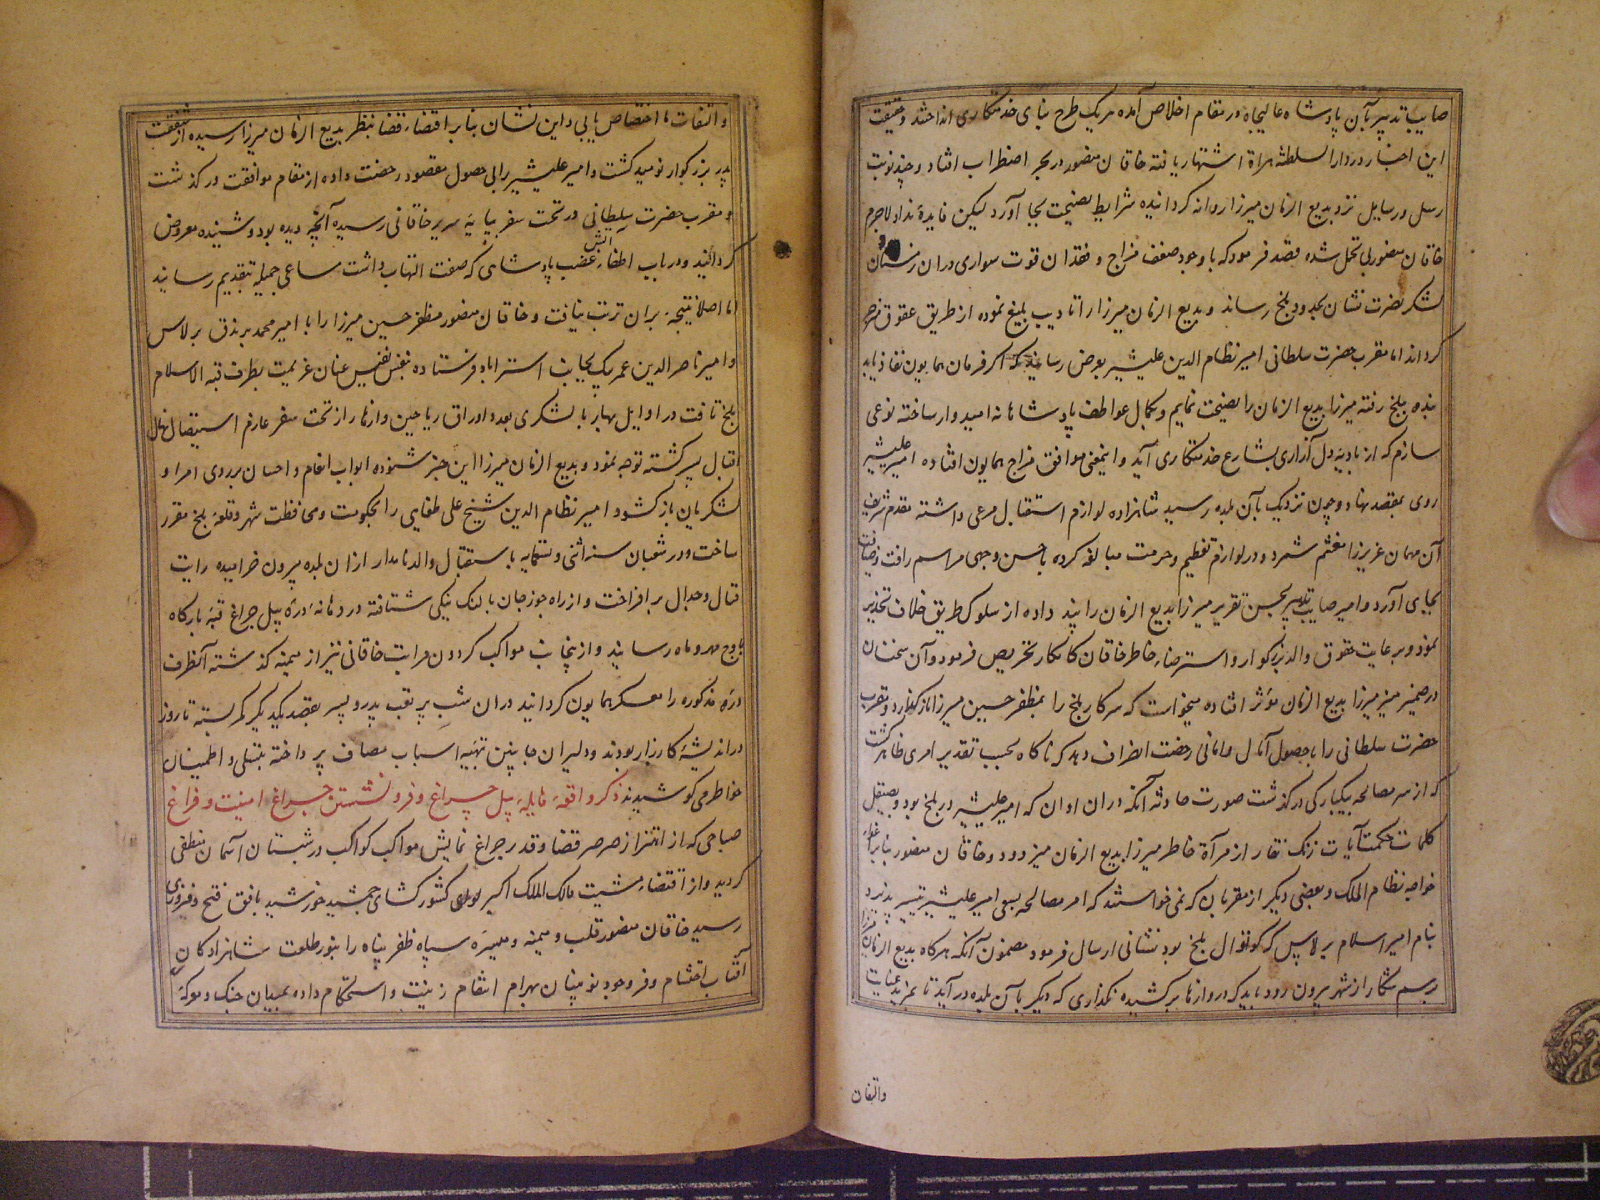 صایب تدبیر بآن پادشاه عالیجاه در مقام اخلاص آمده هر یک طرح بنای خدمتکاری انداختند و حقیقت
این اخبار در دار السلطنه هراة اشتهار یافته خاقان منصور در بحر اضطراب افتاد و چند نوبت
رسل و رسایل نزد بدیع الزمان میرزا روانه گردانیده شرایط نصیحت بجا آورد لیکن فایده نداد لاجرم
خاقان منصور بی تحمل شده قصد فرمود که با وجود ضعف مزاج و فقدان قوت سواری در ان زمستان
لشکر نصرت نشان بحدود بلخ رساند و بدیع الزمان میرزا را تادیب بلیغ نموده از طریق عقوق منصرف
گرداند اما مقرب حضرت سلطانی امیر نظام الدین علیشیر بعرض رسانید که اگر فرمان همایون نفاذ یابد
بنده ببلخ رفته میرزا بدیع الزمان را نصیحت نمایم و بکمال عواطف پادشاهانه امیدوار ساخته نوعی
سازم که از بادیه دل آزاری بشارع خدمتکاری آید و اینمعنی موافق مزاج همایون افتاده امیر علیشیر
روی بمقصد نهاد و چون نزدیک بآن بلده رسید شاهزاده لوازم استقبال مرعی داشته مقدم شریف
آن مهمان عزیز را مغتنم شمرد و در لوازم تعظیم و حرمت مبالغه کرده باحسن وجهی مراسم رافت و ضیافت
بجای آورد و امیر صایب تدبیر بحسن تقریر میرزا بدیع الزمان را پند داده از سلوک طریق خلاف تحذیر
نمود و بر عایت حقوق والد بزرگوار و استرضاء خاطر خاقان کامکار تحریص فرمود و آن سخنان
در ضمیر منیر میرزا بدیع الزمان موثر افتاده میخواست که سرکار بلخ را بمظفر حسین میرزا باز گذارد و مقرب
حضرت سلطانی را با حصول آمال و امانی رخصت انصراف دهد که ناگاه بحسب تقدیر امری ظاهر گشت
که از سر مصالحه بیکبارگی در گذشت صورت حادثه آنکه در ان اوان که امیر علیشیر در بلخ بود و بصیقل
کلمات حکمت آیات زنگ نقار از مرآة خاطر میرزا بدیع الزمان میزدود و خاقان منصور بنابر اغواء
خواجه نظام الملک و بعضی دیگر از مقربان که نمی خواستند که امر مصالحه بسعی امیر علیشیر تیسیر پذیرد
بنام امیر اسلام برلاس که کوتوال بلخ بود نشانی ارسال فرمود مضمون آنکه هرگاه بدیع الزمان میرزا
برسم شکار از شهر بیرون رود باید که دروازها بر کشیده نگذاری که دیگر بآن بلده در آید تا بمزید عنایت
والتفات
و التفات ما اختصاص یابی و این نشان بنابر اقتضاء قضا بنظر بدیع الزمان میرزا رسیده از شفقت
پدر بزرگوار نومید گشت و امیر علیشیر را بی حصول مقصود رخصت داده از مقام موافقت در گذشت
و مقرب حضرت سلطانی در تحت سفر بپایه سریر خاقانی رسیده آنچه دیده بود و شنیده معروض
گردانید و در باب اطفاء آتش غضب پادشاهی که صفت التهاب داشت مساعی جمیله بتقدیم رسانید
اما اصلا نتیجه بران ترتب نیافت و خاقان منصور مظفر حسین میرزا را با امیر محمد برندق برلاس
و امیر ناصر الدین عمر بیک بجانب استراباد فرستاده بنفس نفیس عنان عزیمت بطرف قبة الاسلام
بلخ تافت در اوایل بهار با لشکری بعدد اوراق ریاحین و ازهار از تحت سفر عازم استیصال نهال
اقبال پسر گشته توجه نمود و بدیع الزمان میرزا این خبر شنوده ابواب انعام و احسان بر روی امرا و
لشکریان باز گشود و امیر نظام الدین شیخ علی طغایی را بحکومت و محافظت شهر و قلعه بلخ مقرر
ساخت و در شعبان سنه اثنی و تسعمایه باستقبال والد نامدار از ان بلده بیرون خرامیده رایت
قتال و جدال بر افراخت و از راه جوزجان بالنک نیکی شتافته در دهانه دره پل چراغ قبه بارگاه
باوج مهر و ماه رسانید و ازینجانب مواکب گردون مراتب خاقانی نیز از میمنه گذشته آنطرف
دره مذکوره را معسکر همایون گردانید در ان شب پر تعب پدر و پسر بقصد یکدیگر کمر بسته تا روز
در اندیشه کارزار بودند و دلیران جانبین تهیه اسباب مصاف پرداخته بتسلی و اطمینان
خواطر می کوشیدند ذکر واقعه هایله پل چراغ و فرو نشستن چراغ امنیت و فراغ
صباحی که از اهتزاز صرصر قضا و قدر چراغ نمایش مواکب کواکب در شبستان آسمان منطفی
گردید و از اقتضاء مشیت مالک الملک اکبر لوای کشور کشای جمشید خورشید بافق فتح و فیروزی
رسید خاقان منصور قلب و میمنه و میسره سپاه ظفر پناه را بنور طلعت شاهزادگان
آفتاب احتشام و فر وجود نوئینان بهرام انتقام زینت و استحکام داده بمیدان جنگ و معرکه